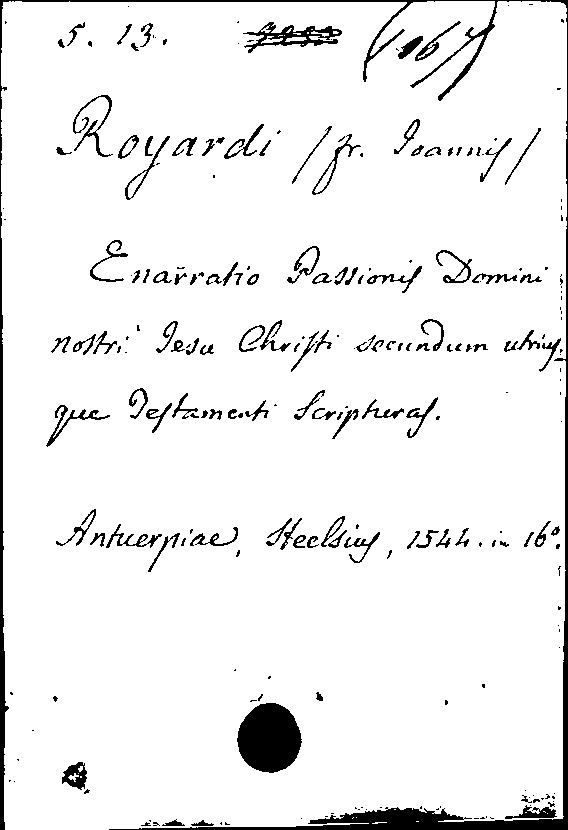 5. 13. (16/
Royardi /fr. Ioannis/
Enarratio Passionis Domini
nostri Jesu Christi secundum utrius-
que Testamenti Scripturas.
Antuerpiae, Steelsius, 1544. in 16°.